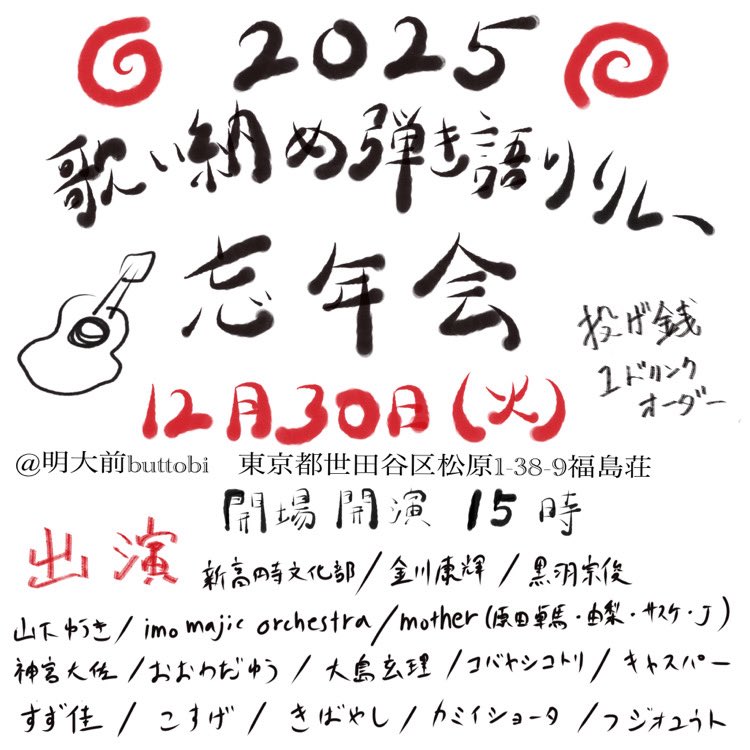 2025
歌い納め弾き語りリレー
忘年会
投げ銭
1ドリンク
オーダー
12月30日(火)
@明大前buttobi 東京都世田谷区松原1-38-9福島荘
開場開演 15時
出演
新高円寺文化部/金川東輝/黒羽宗俊
山下ゆうき/imo majic orchestra/mother(原田卓馬・由梨・サスケ・J)
神宮大佐/おおわだゆう/大島玄理/コバヤシコトリ/キャスパー
すず佳/こすげ/きばやし/カミイショータ/フジオユウト